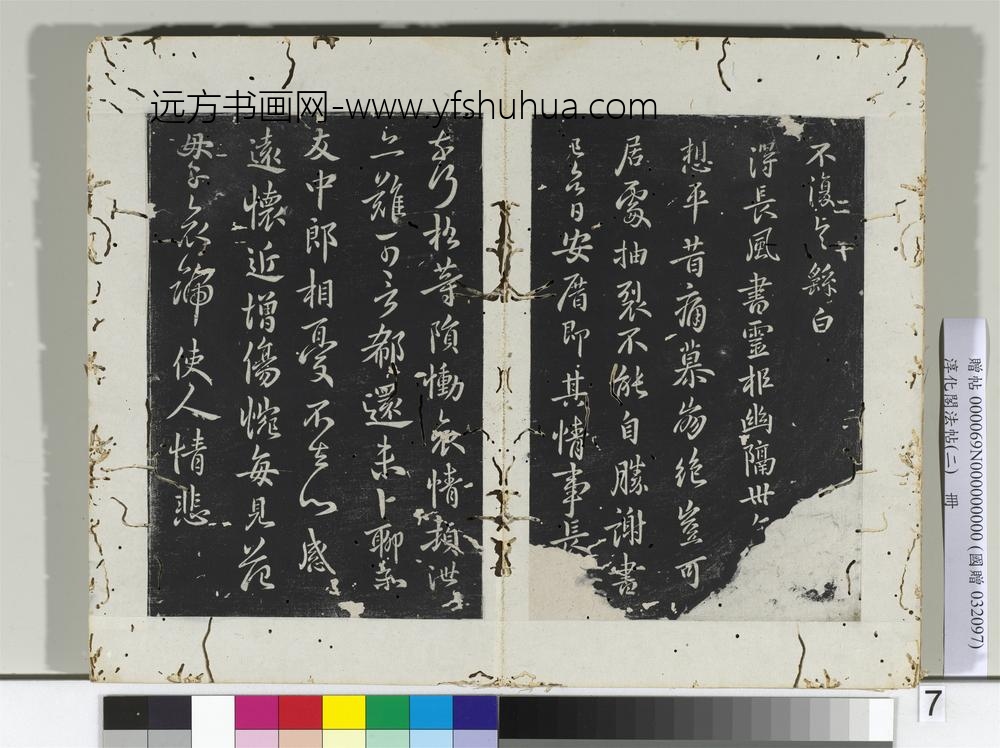 远方书画网-www.yfshuhua.com
不復一一 繇白
得長風書靈柩幽隔卅年
想平昔痛慕崩絕豈可
居處抽裂不能自勝謝書
已令日安厝即其情事長
畢往松等隕慟哀情頓泄
亦難可言郗還未卜聊示
友中郎相憂不去心感
遠懷近增傷惋每見范
母子哀號使人情悲
贈帖 000069N000000000 (國贈 032097)
淳化閣法帖(二) 冊
7